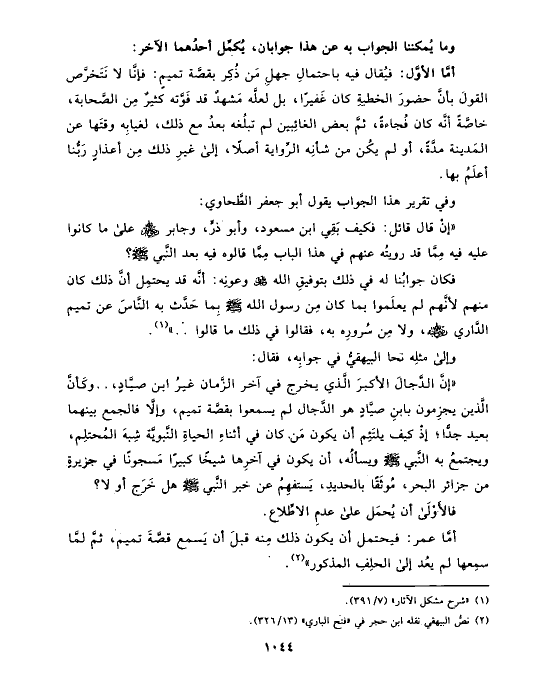 وما يُمكننا الجواب به عن هذا جوابان، يُكمِّل أحدُهما الآخر:
أمَّا الأوَّل: فيُقال فيه باحتمالِ جهلِ مَن ذُكِر بقصَّة تميمٍ: فإنَّا لا نَتَخرَّص
القولَ بأنَّ حضورَ الخطبةِ كان غَفيرًا، بل لعلَّه مَشهدٌ قد فَوَّته كثيرٌ مِن الصَّحابة،
خاصَّةً أنَّه كان فُجاءةً، ثمَّ بعض الغائِبين لم تبلُغه بعدُ مع ذلك، لغيابِه وقتَها عن
المَدينة مدَّةً، أو لم يكُن من شأنِه الرِّواية أصلًا، إلىٰ غيرِ ذلك مِن أعذارٍ رَبُّنا
أعلَمُ بها.
وفي تقرير هذا الجواب يقول أبو جعفر الطَّحاوي:
«إنْ قال قائل: فكيف بَقِي ابن مسعود، وأبو ذرٍّ، وجابر ﷺ علىٰ ما كانوا
عليه فيه مِمَّا قد رويتُه عنهم في هذا الباب مِمَّا قالوه فيه بعد النَّبي ﷺ؟
فكان جوابُنا له في ذلك بتوفيقِ الله ﷻ وعونِه: أنَّه قد يحتمِل أنَّ ذلك كان
منهم لأنَّهم لم يعلَموا بما كان مِن رسول الله ﷺ بِما حَدَّث به النَّاسَ عن تميم
الدَّاري ﷺ، ولا مِن سُرورِه به، فقالوا في ذلك ما قالوا ..»(١).
وإلىٰ مثلِه نحا البيهقيُّ في جوابِه، فقال:
«إنَّ الدَّجال الأكبرَ الَّذي يخرج في آخر الزَّمان غيرُ ابن صيَّادٍ، ..وكَأنَّ
الَّذين يجزِمون بابنِ صيَّادٍ هو الدَّجال لم يسمعوا بقصَّة تميم، وإلَّا فالجمع بينهما
بعيد جدًّا؛ إذْ كيف يلتَئِم أن يكون مَن كان في أثناءِ الحياةِ النَّبويَّة شِبهَ المُحتلِم،
ويجتمعُ به النَّبي ﷺ ويسألُه، أن يكون في آخرِها شيخًا كبيرًا مَسجونًا في جزيرةٍ
من جزائر البحر، مُوثَقًا بالحديدِ، يَستفهِمُ عن خبر النَّبي ﷺ هل خَرَج أو لا؟
فالأَوْلَىٰ أن يُحمَل علىٰ عدمِ الاطِّلاع.
أمَّا عمر: فيحتمل أن يكون ذلك مِنه قبلَ أن يَسمع قصَّةَ تميمٍ، ثمَّ لمَّا
سمِعها لم يعُد إلىٰ الحلِفِ المذكور»(٢).
(١) «شرح مشكل الآثار» (٣٩١/٧).
(٢) نصُّ البيهقي نقله ابن حجر في «فتح الباري» (٣٢٦/١٣).
١٠٤٤